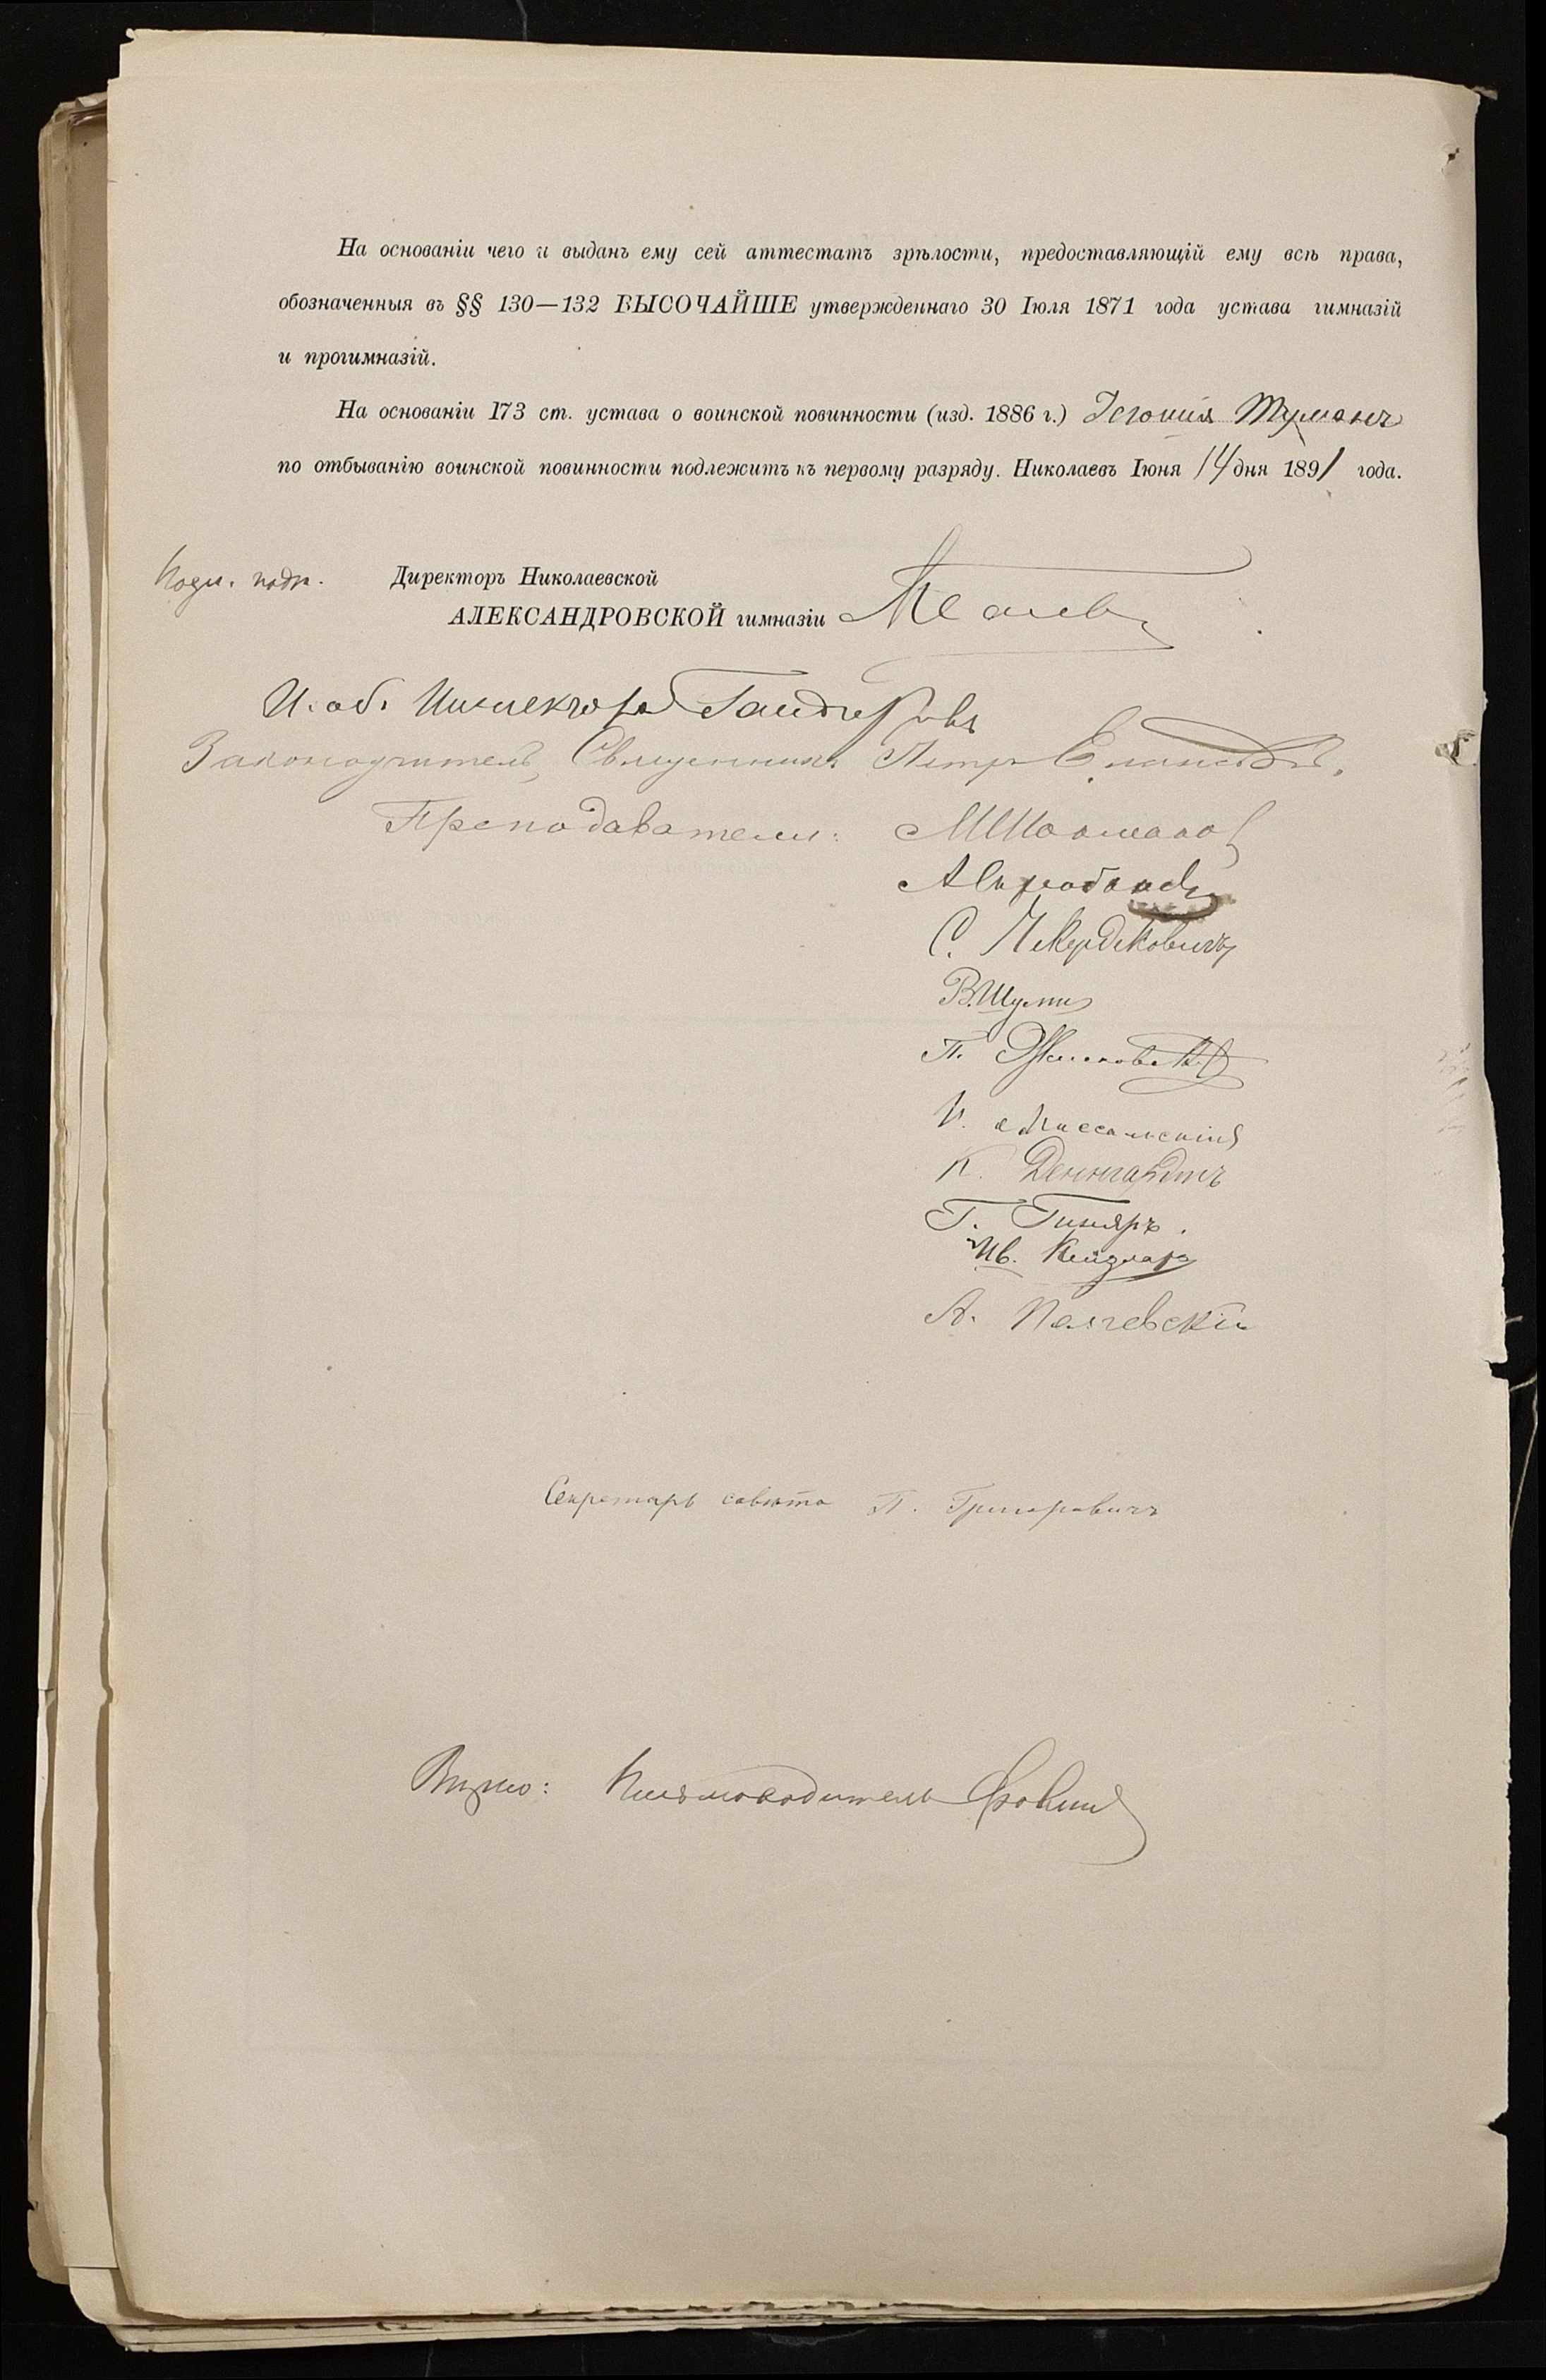 На основаніи чего и выданъ ему сей аттестатъ зрѣлости, предоставляющій ему всѣ права,
обозначенныя въ §§ 130—132 ВЫСОЧАЙШЕ утвержденнаго 30 Іюля 1871 года устава гимназій
и прогимназій.
На основаніи 173 ст. устава о воинской повинности (изд. 1886 г.) Іегошія Туманъ
по отбыванію воинской повинности подлежитъ къ первому разряду. Николаевъ Іюня 14 дня 1891 года.
Подл. подп. Директоръ Николаевской
АЛЕКСАНДРОВСКОЙ гимназіи
И. об. Инспектора
Законоучитель, Священникъ Петръ
Преподаватели:
А
С.
В. Шульц
П.
И. Миссальскій
К. Денгардтъ
Г. Гиняръ.
Ив. Кейзларъ
А. Палчевскій
Секретарь совѣта П. Григоровичъ
Вѣрно: Письмоводитель